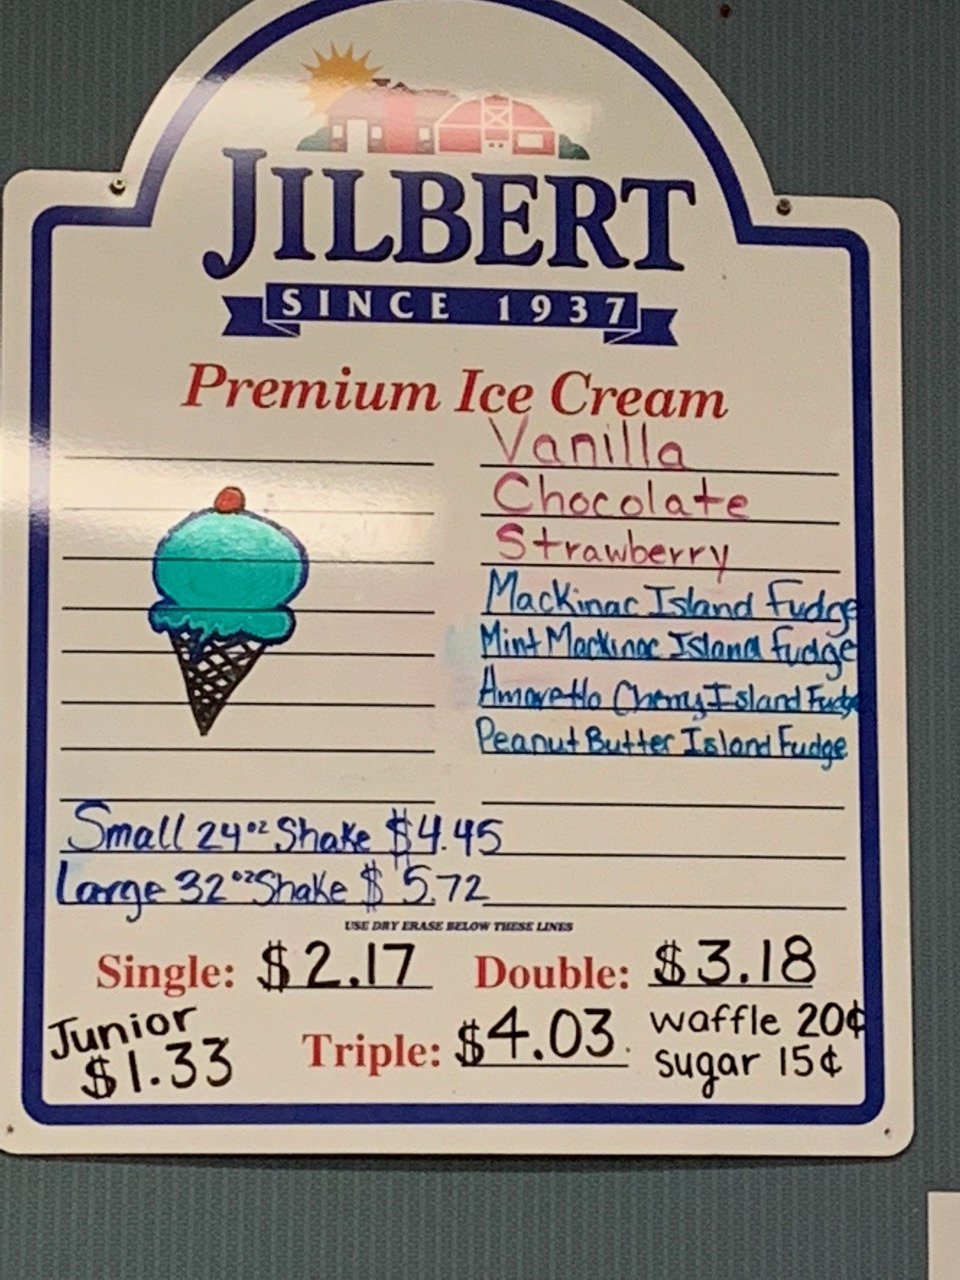 JILBERT
SINCE 1937
Premium Ice Cream
Vanilla
Chocolate
Strawberry
Mackinac Island Fudge
Mint Mackinac Island Fudge
Amaretto Cherry Island Fudge
Peanut Butter Island Fudge
Small 24oz Shake $4.45
Large 32oz Shake $5.72
USE DRY ERASE BELOW THESE LINES
Single: $2.17 Double: $3.18
Junior $1.33
Triple: $4.03
waffle 20¢
sugar 15¢